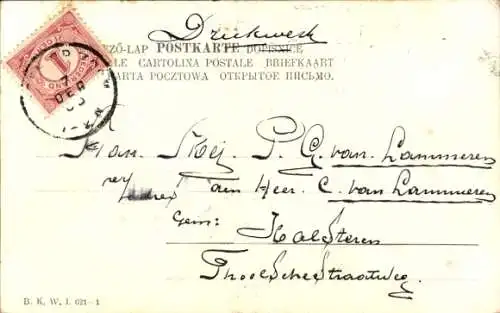 Drukwerk
EZŐ-LAP POSTKARTE DOPISNICE
LE CARTOLINA POSTALE BRIEFKAART
ARTA POCZTOWA ОТКРЫТОЕ ПИСЬМО.
1
7
DEC
Mej. P. G. van Lammeren
Adres den Heer C. van Lammeren
Gem: Halsteren
Thoolschestraatweg.
B. K. W. I. 621-1